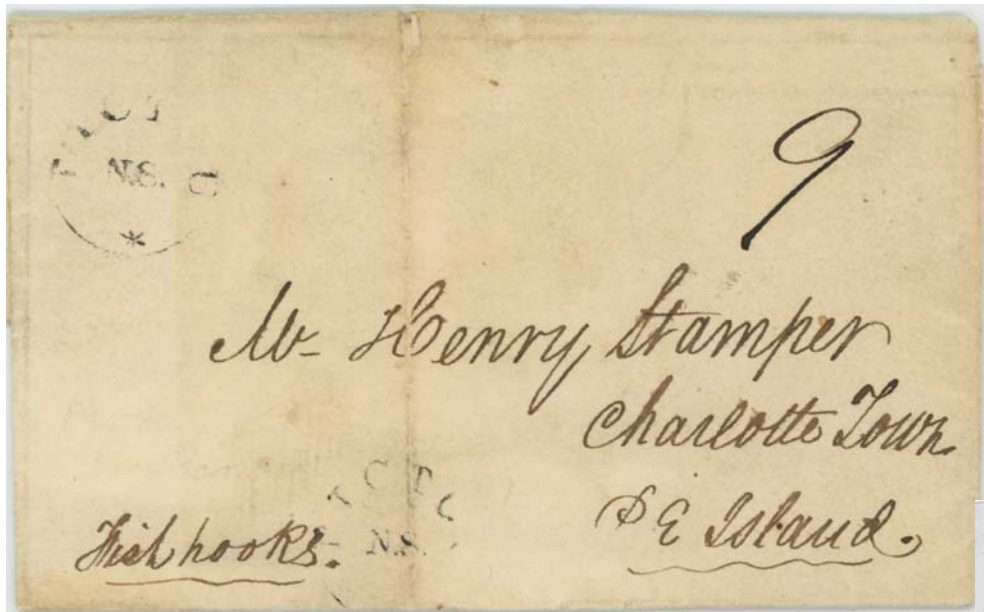 N.S.
9
Mr Henry Stamper
Charlotte Town
P E Island.
Fish hooks.
N.S.